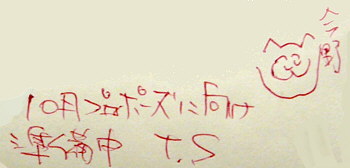 今野
10月プロポーズに向け
準備中 T.S